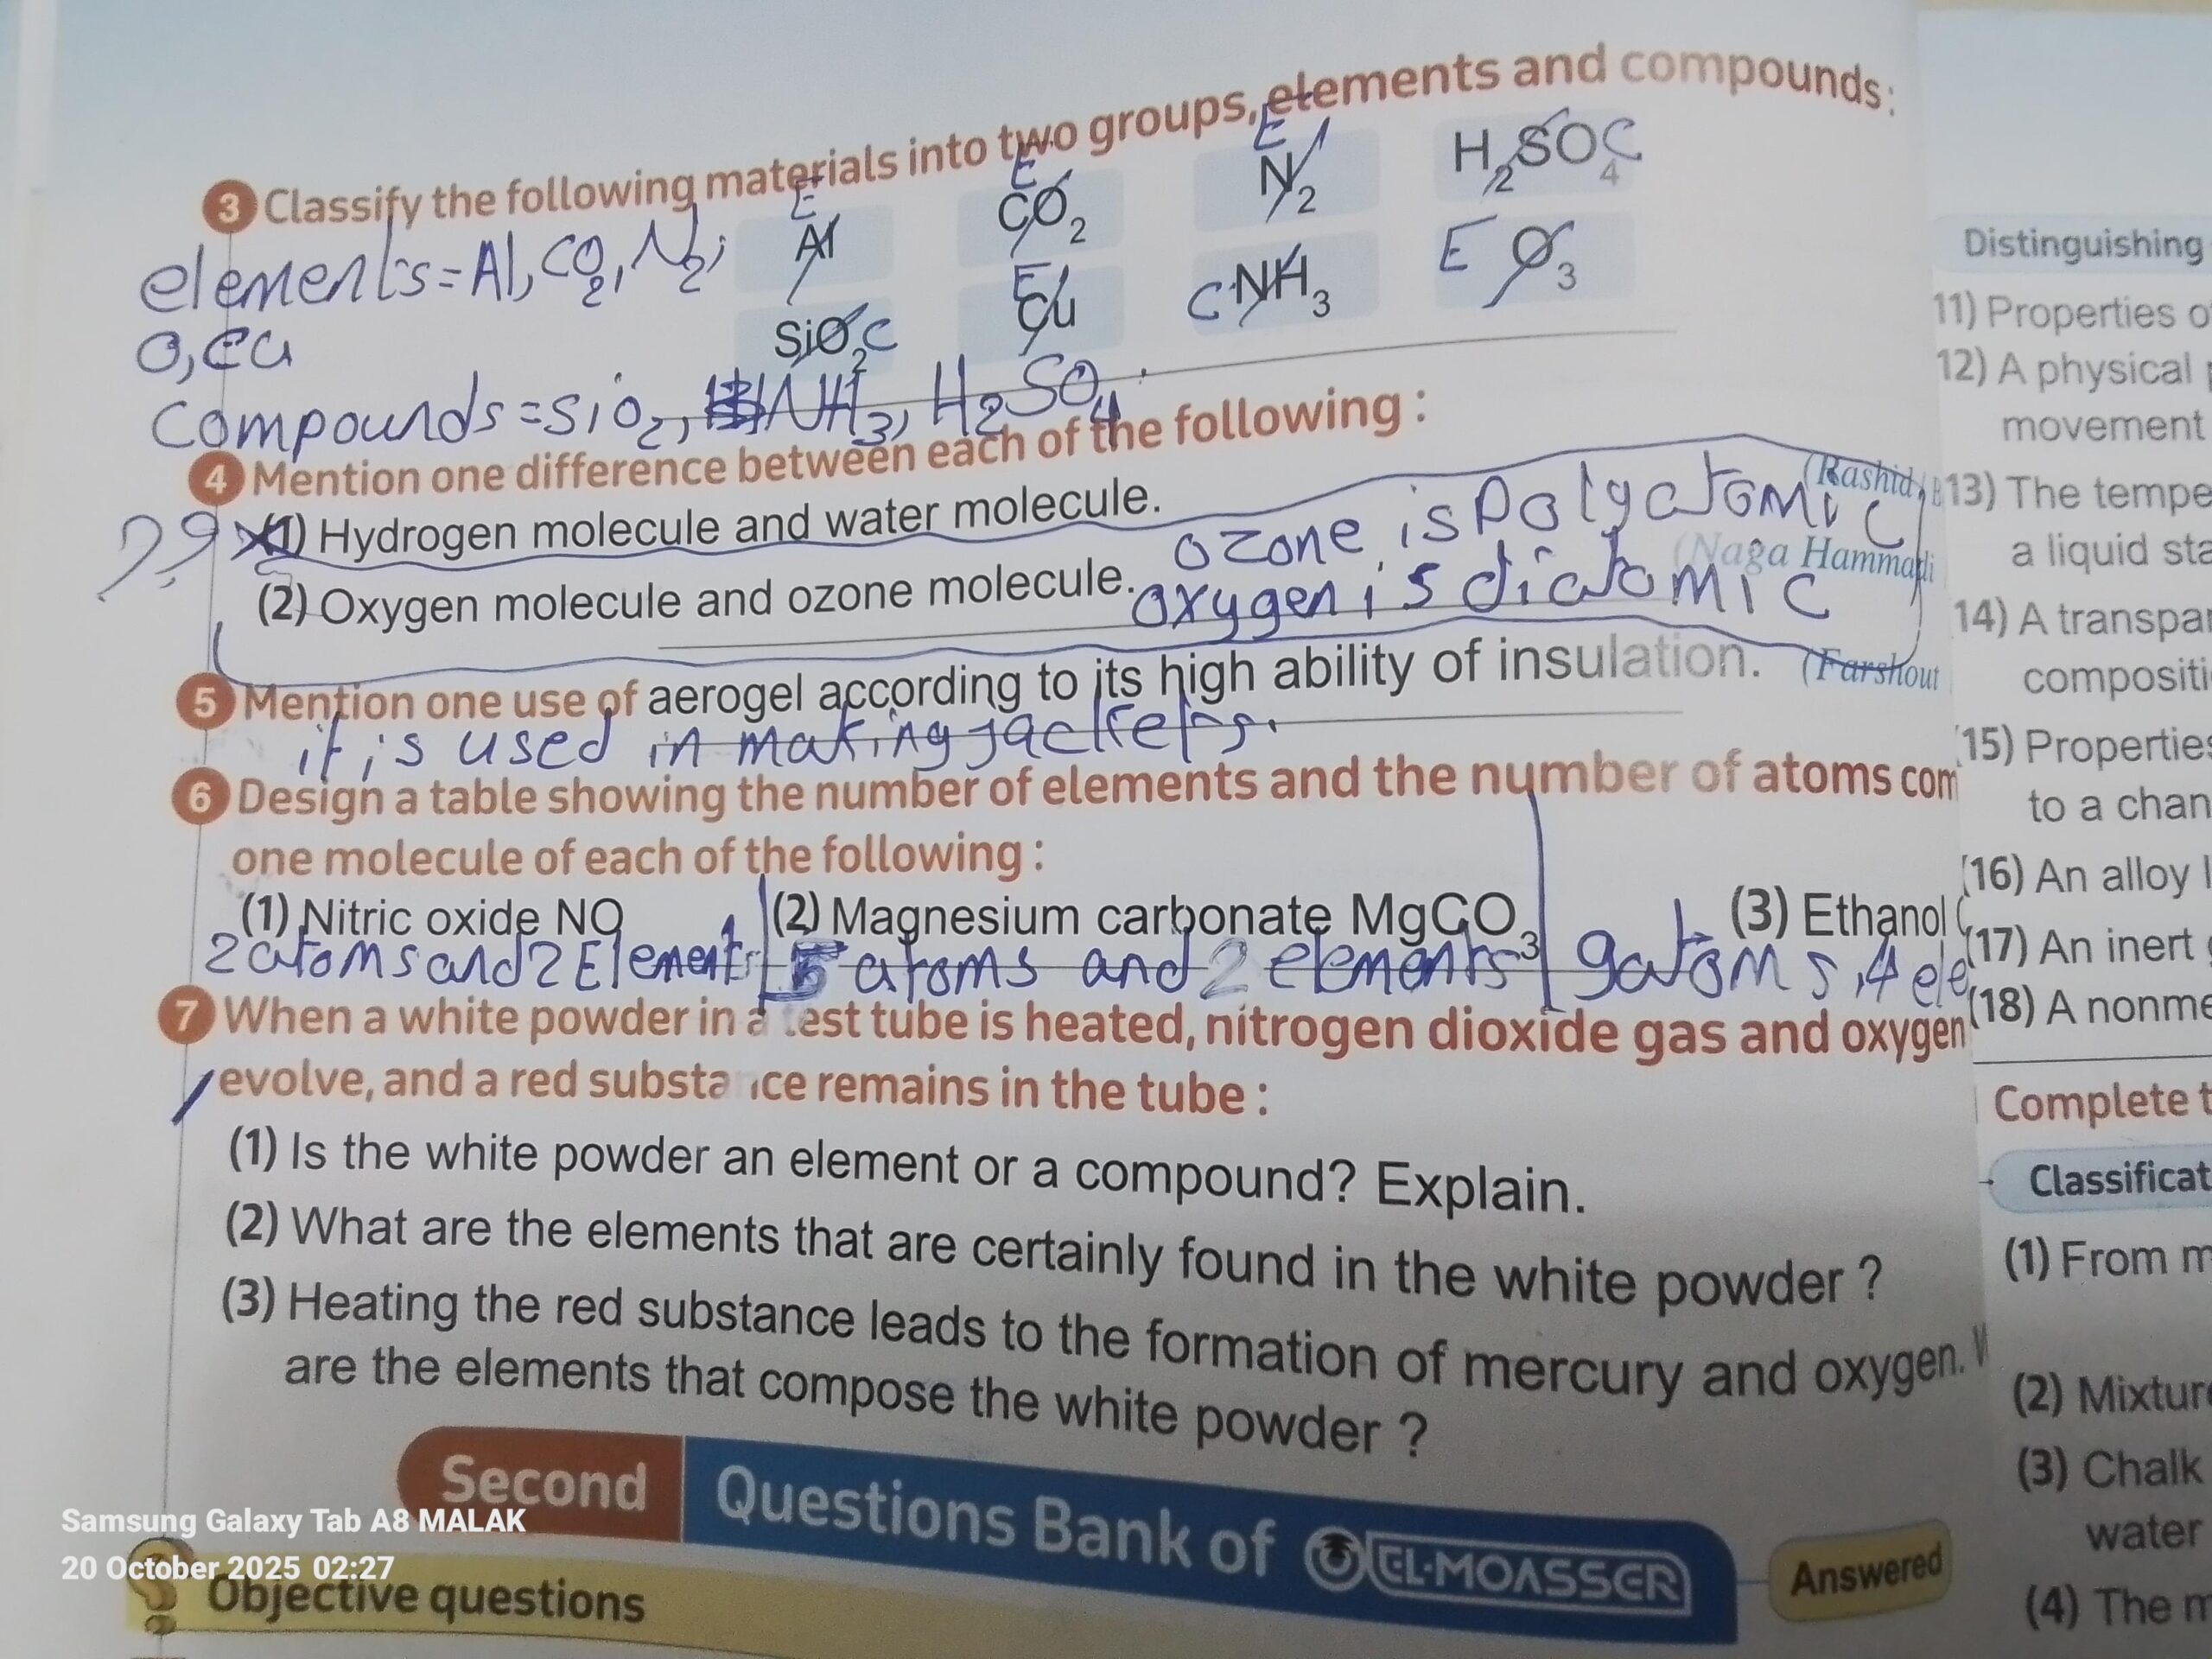 3 Classify the following materials into two groups, elements and compounds:
E E E
Al CO2 N2 H2SO4 C
elements = Al, CO2, N2,
O, Cu
SiO2 C E Cu C NH3 E O3
compounds = SiO2, NH3, H2SO4.
4 Mention one difference between each of the following :
?? (1) Hydrogen molecule and water molecule. (Rashid,
ozone is Polyatomic
(2) Oxygen molecule and ozone molecule. (Naga Hammadi
oxygen is diatomic
5 Mention one use of aerogel according to its high ability of insulation. (Farshout
it is used in making jackets.
6 Design a table showing the number of elements and the number of atoms com
one molecule of each of the following :
(1) Nitric oxide NO (2) Magnesium carbonate MgCO3 (3) Ethanol (
2 atoms and 2 Elements 5 atoms and 2 elements 9 atoms, 4 ele
7 When a white powder in a test tube is heated, nitrogen dioxide gas and oxygen
evolve, and a red substance remains in the tube :
(1) Is the white powder an element or a compound? Explain.
(2) What are the elements that are certainly found in the white powder ?
(3) Heating the red substance leads to the formation of mercury and oxygen. W
are the elements that compose the white powder ?
Second Questions Bank of EL-MOASSER Answered
Objective questions
Samsung Galaxy Tab A8 MALAK
20 October 2025 02:27
Distinguishing
11) Properties o
12) A physical p
movement
13) The tempe
a liquid sta
14) A transpar
compositi
15) Properties
to a chan
(16) An alloy l
(17) An inert g
(18) A nonme
Complete t
Classificat
(1) From m
(2) Mixture
(3) Chalk
water
(4) The m